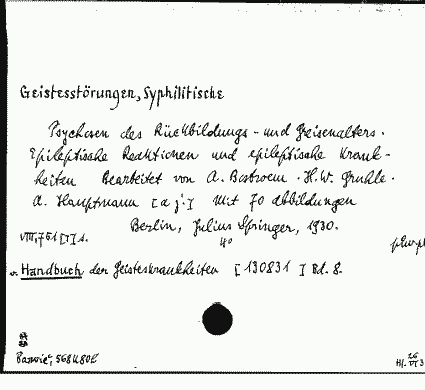 Geistesstörungen, Syphilitische
Psychosen des Rückbildungs- und Greisenalters.
Epileptische Reaktionen und epileptische Krank-
heiten Bearbeitet von A. Bostroem. H.W. Gruhle.
A. Hauptmann [a.j.] Mit 70 Abbildungen
Berlin, Julius Springer, 1930.
4o
v. Handbuch der Geisteskrankheiten [130831] Bd. 8.
568480L